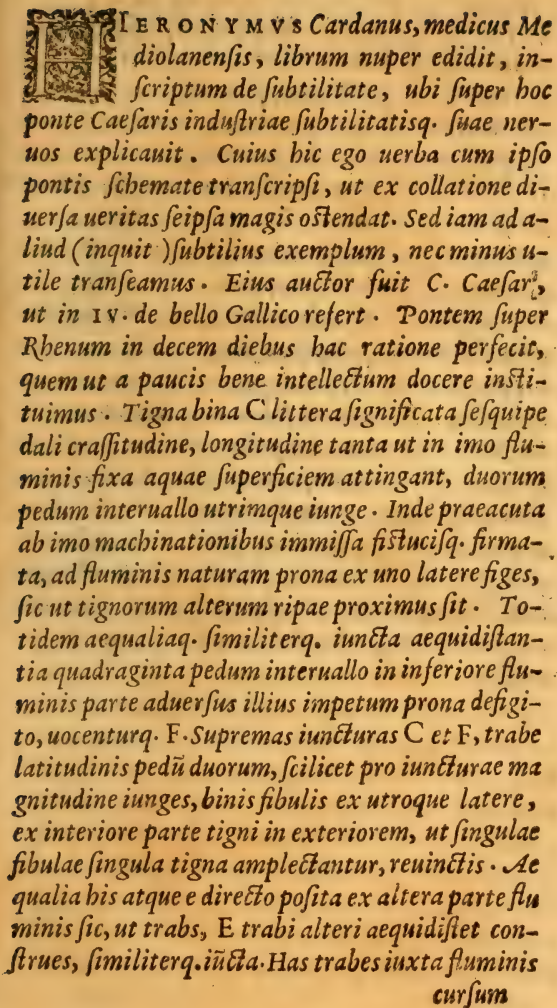 HIERONYMVS Cardanus, medicus Me
diolanenſis, librum nuper edidit, in-
ſcriptum de ſubtilitate, ubi ſuper hoc
ponte Caeſaris induſtriae ſubtilitatisq. ſuae ner-
uos explicauit. Cuius hic ego uerba cum ipſo
pontis ſchemate tranſcripſi, ut ex collatione di-
uerſa ueritas ſeipſa magis oſtendat. Sed iam ad a-
liud (inquit) ſubtilius exemplum, nec minus u-
tile tranſeamus. Eius auctor fuit C. Caeſar,
ut in IV. de bello Gallico refert. Pontem ſuper
Rhenum in decem diebus hac ratione perfecit,
quem ut a paucis bene intellectum docere inſti-
tuimus. Tigna bina C littera ſignificata ſeſquipe
dali craſſitudine, longitudine tanta ut in imo flu-
minis fixa aquae ſuperficiem attingant, duorum
pedum interuallo utrimque iunge. Inde praeacuta
ab imo machinationibus immiſſa fiſtuciſq. firma-
ta, ad fluminis naturam prona ex uno latere figes,
ſic ut tignorum alterum ripae proximus ſit. To-
tidem aequaliaq. ſimiliterq. iuncta aequidiſtan-
tia quadraginta pedum interuallo in inferiore flu-
minis parte aduerſus illius impetum prona defigi-
to, uocenturq. F. Supremas iuncturas C et F, trabe
latitudinis pedũ duorum, ſcilicet pro iuncturae ma
gnitudine iunges, binis fibulis ex utroque latere,
ex interiore parte tigni in exteriorem, ut ſingulae
fibulae ſingula tigna amplectantur, reuinctis. Ae
qualia his atque e directo poſita ex altera parte flu
minis ſic, ut trabs, E trabi alteri aequidiſtet con-
ſtrues, ſimiliterq. iũcta. Has trabes iuxta fluminis
curſum